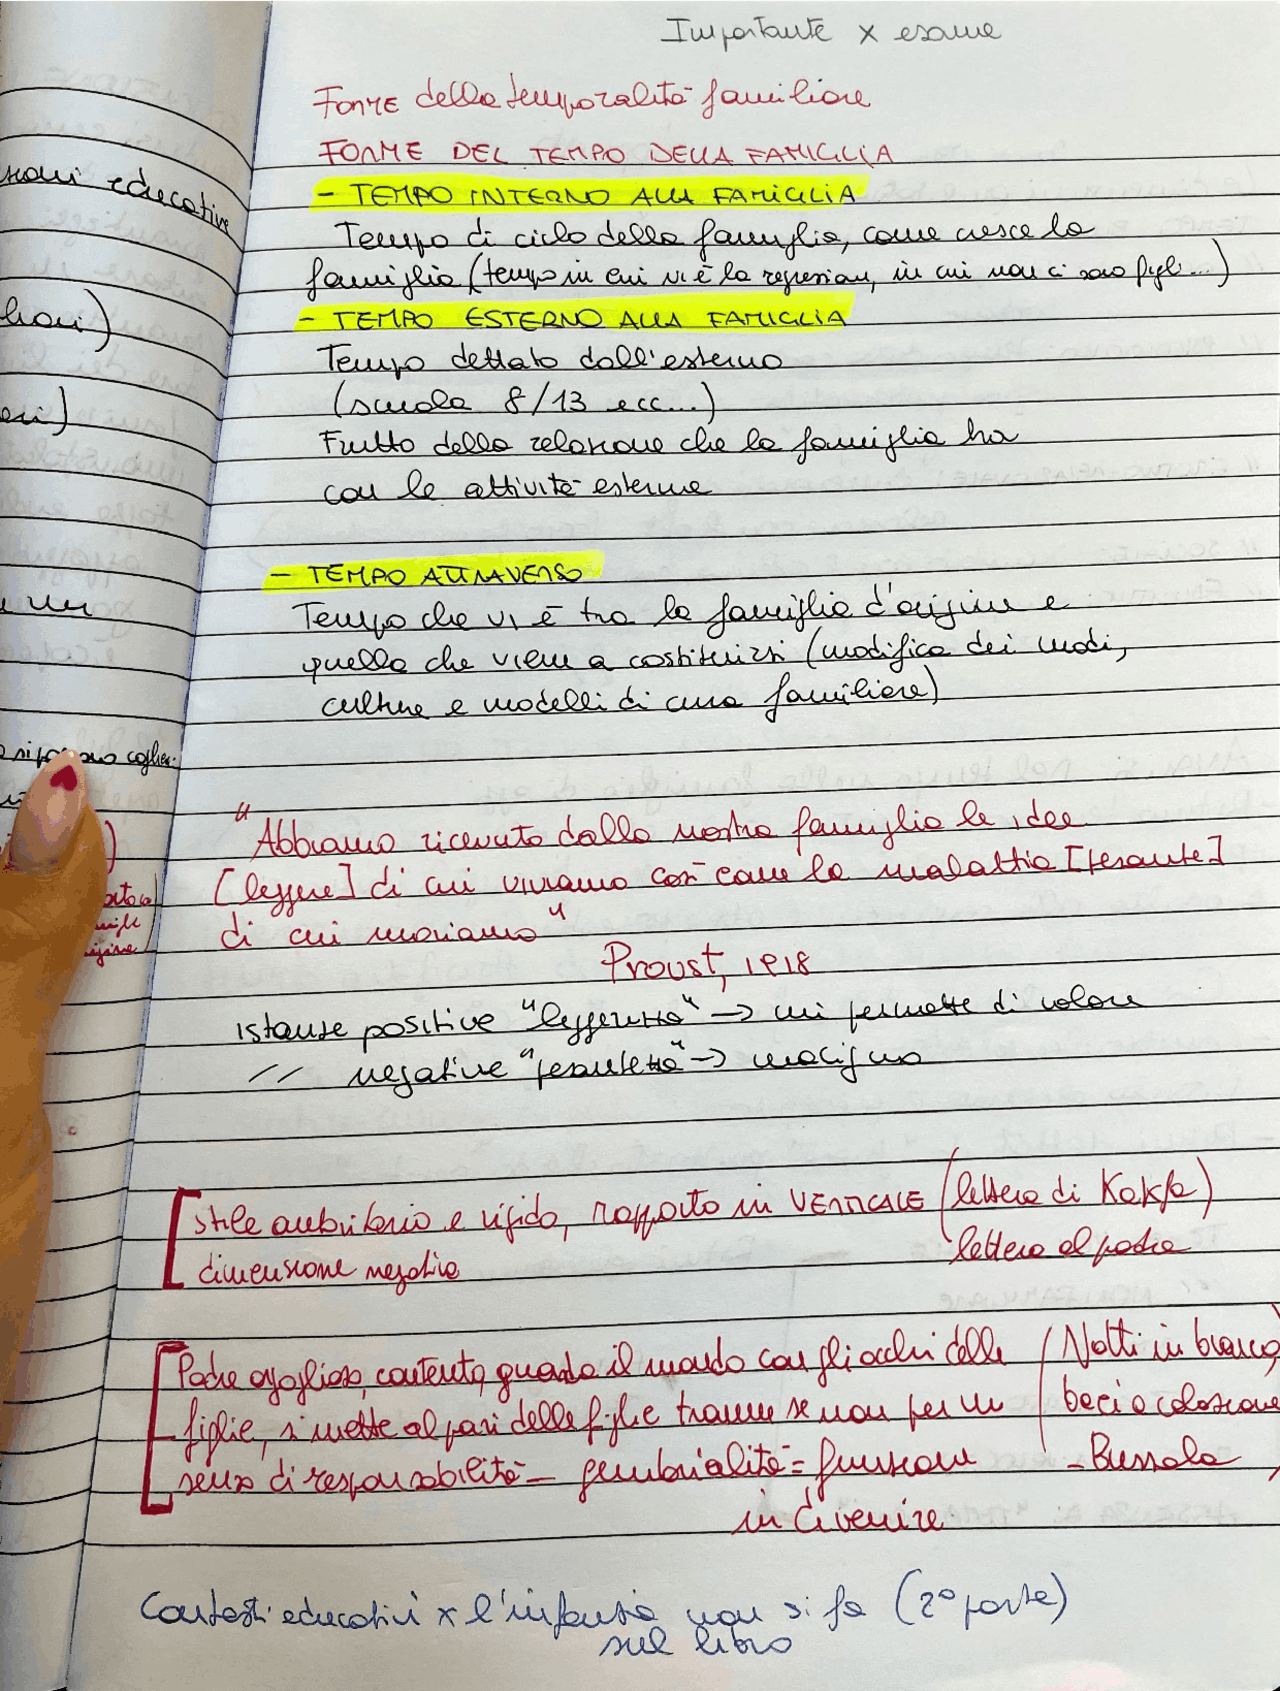 Importante x esame
Forme della temporalità familiare
FORME DEL TEMPO DELLA FAMIGLIA
- TEMPO INTERNO ALLA FAMIGLIA
Tempo di ciclo della famiglia, come cresce la
famiglia (tempo in cui vi è la, in cui non ci sono figli...)
- TEMPO ESTERNO ALLA FAMIGLIA
Tempo dettato dall'esterno
(scuola 8/13 ecc...)
Frutto della relazione che la famiglia ha
con le attività esterne
- TEMPO ATTRAVERSO
Tempo che vi è tra la famiglia d'origine e
quella che viene a costituirsi (modifica dei modi,
culture e modelli di cura familiare)
"Abbiamo ricevuto dalla nostra famiglia le idee
[leggere] di cui viviamo così come la malattia [pesante]
di cui moriamo"
Proust, 1918
istanze positive "leggerezza" -> mi permette di volare
// negative "pesantezza" -> macigno
stile autoritario e rigido, rapporto in VERTICALE (lettera di Kakfa)
dimensione negativa lettera al padre
Padre orgoglioso, contento, guarda il mondo con gli occhi delle (Notti in bianco,
figlie, si mette al pari delle figlie tranne se non per un baci a colazione
senso di responsabilità - genitorialità = funzione - Bussola
in divenire
Contesti educativi x l'infanzia non si fa (2° parte)
sul libro
educative
e un
si possono coglier